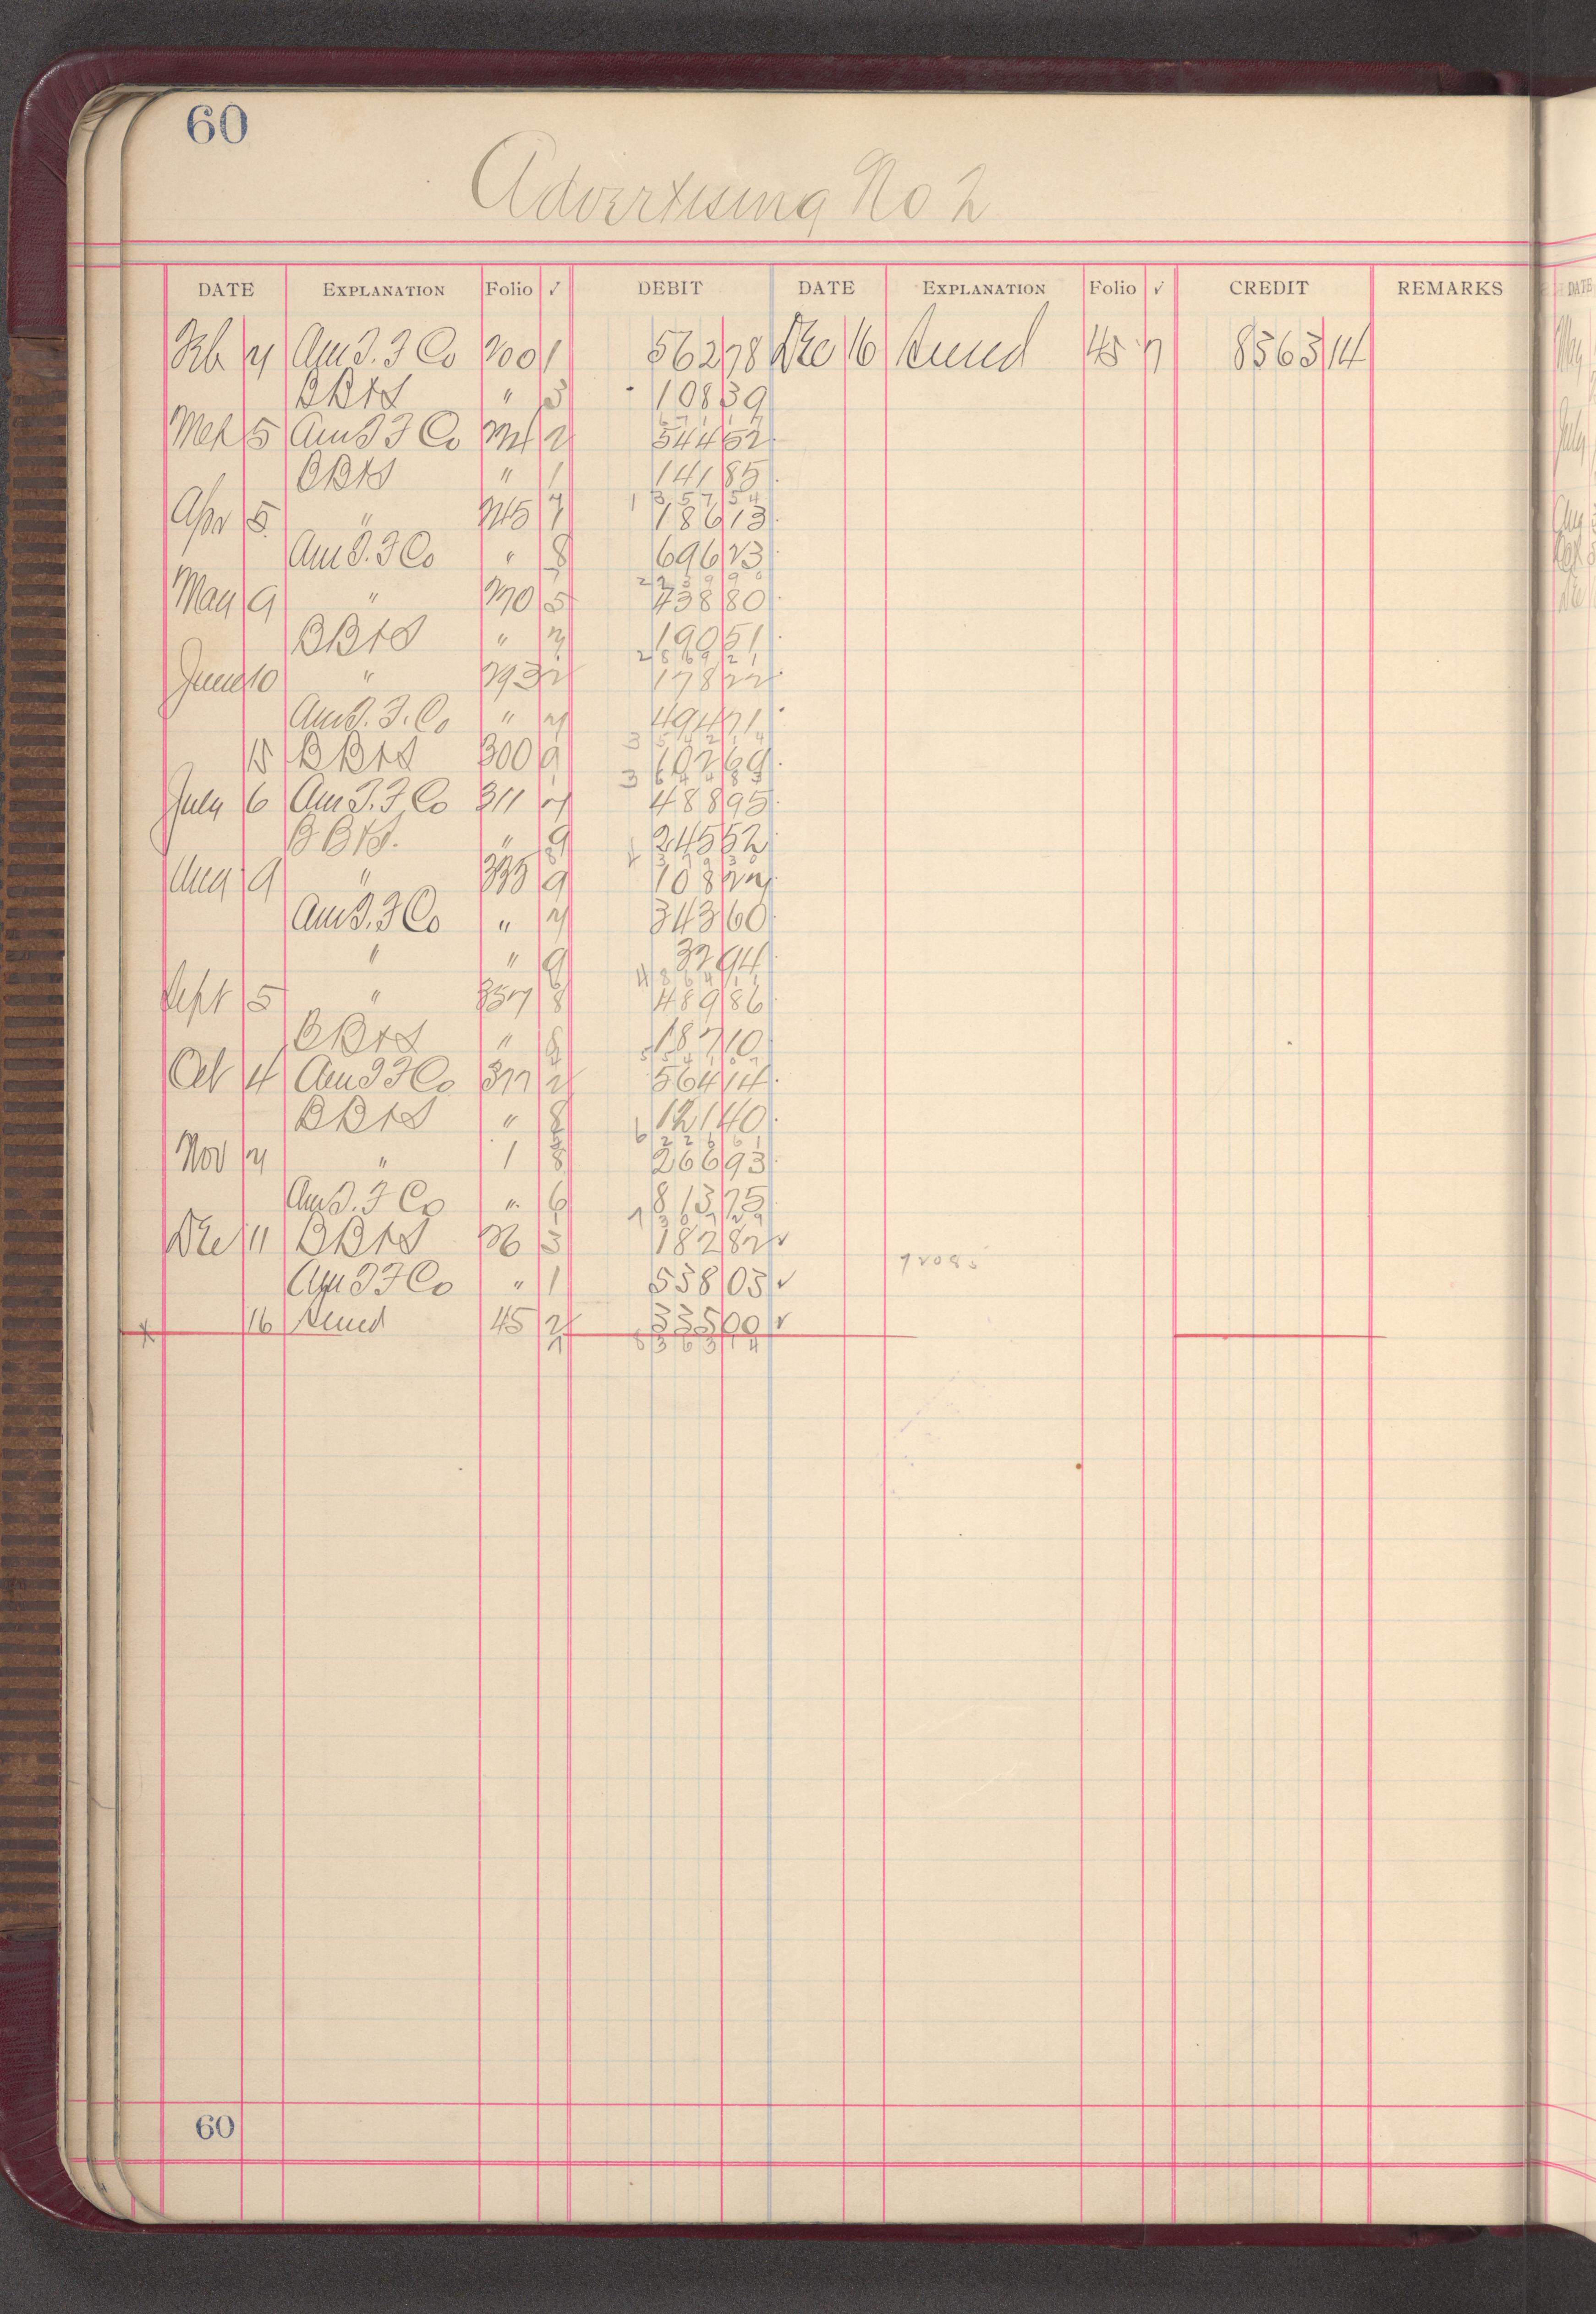 60
Advertising No 2
DATE EXPLANATION Folio ✓ DEBIT DATE EXPLANATION Folio ✓ CREDIT REMARKS
Feb 7 Am T. F Co 200 1 562 78 Dec 16 Sund 45 7 8363 14
BB&S " 3 108 39
671 17
Mch 5 Am T F Co 221 2 544 52
BB&S " 1 141 85
1357 54
Apr 5 " 245 1 186 13
Am T. F Co " 8 696 23
2239 90
May 9 " 270 5 438 80
BB&S " 7 190 51
2869 21
June 10 " 293 2 178 22
Am T. F. Co " 7 494 71
3542 14
15 BB&S 300 9 102 69
3644 83
July 6 Am T. F. Co 311 7 488 95
BB&S. " 9 245 52
4379 30
Aug 9 " 335 9 108 27
Am T. F Co " 7 343 60
" " 9 32 94
4864 11
Sept 5 " 357 8 489 86
BB&S " 8 187 10
5541 07
Oct 4 Am T F Co 377 2 564 14
BB&S " 8 121 40
6226 61
Nov 7 " 1 8 266 93
Am T. F Co " 6 813 75
7307 29
Dec 11 BB&S 26 3 182 82 ✓
Am T F Co " 1 538 03 ✓
x 16 Sund 45 2 335 00 ✓
7 8363 14
60